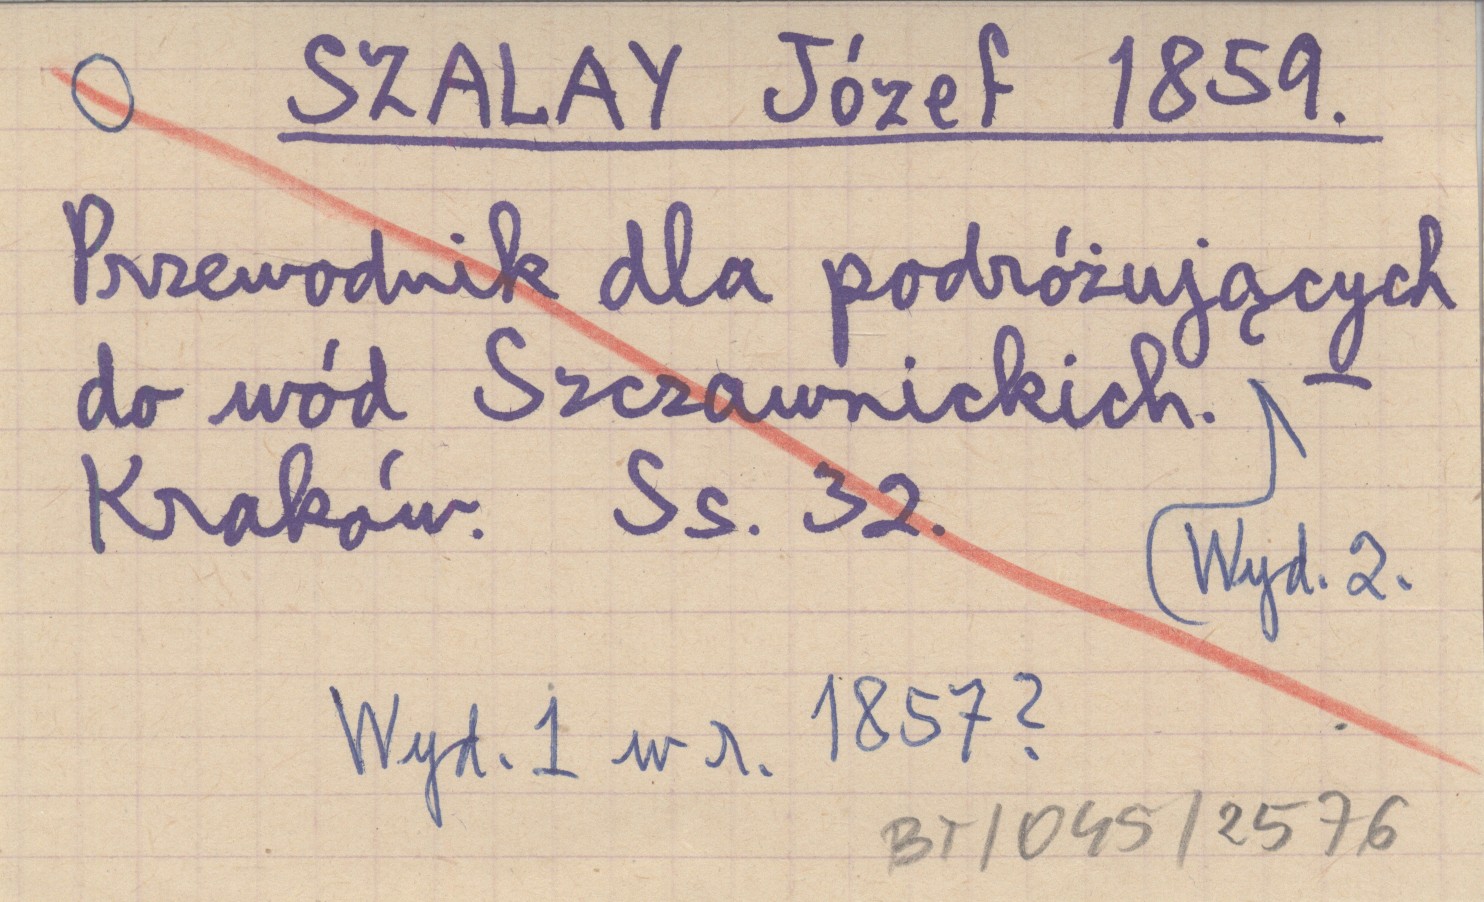 SZALAY Józef 1859.
Przewodnik dla podróżujących
do wód Szczawnickich. –
Kraków. Ss. 32.
Wyd. 2.
Wyd. 1 w r. 1857?
BT/045/2576